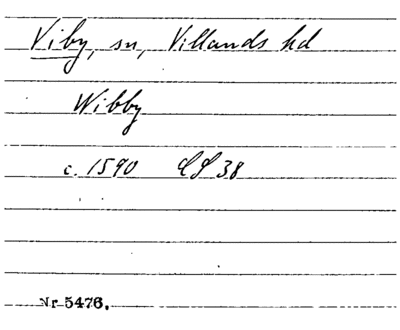 Viby, sn, Villands hd
Wibby
c. 1590 LS 38
Nr 5476.